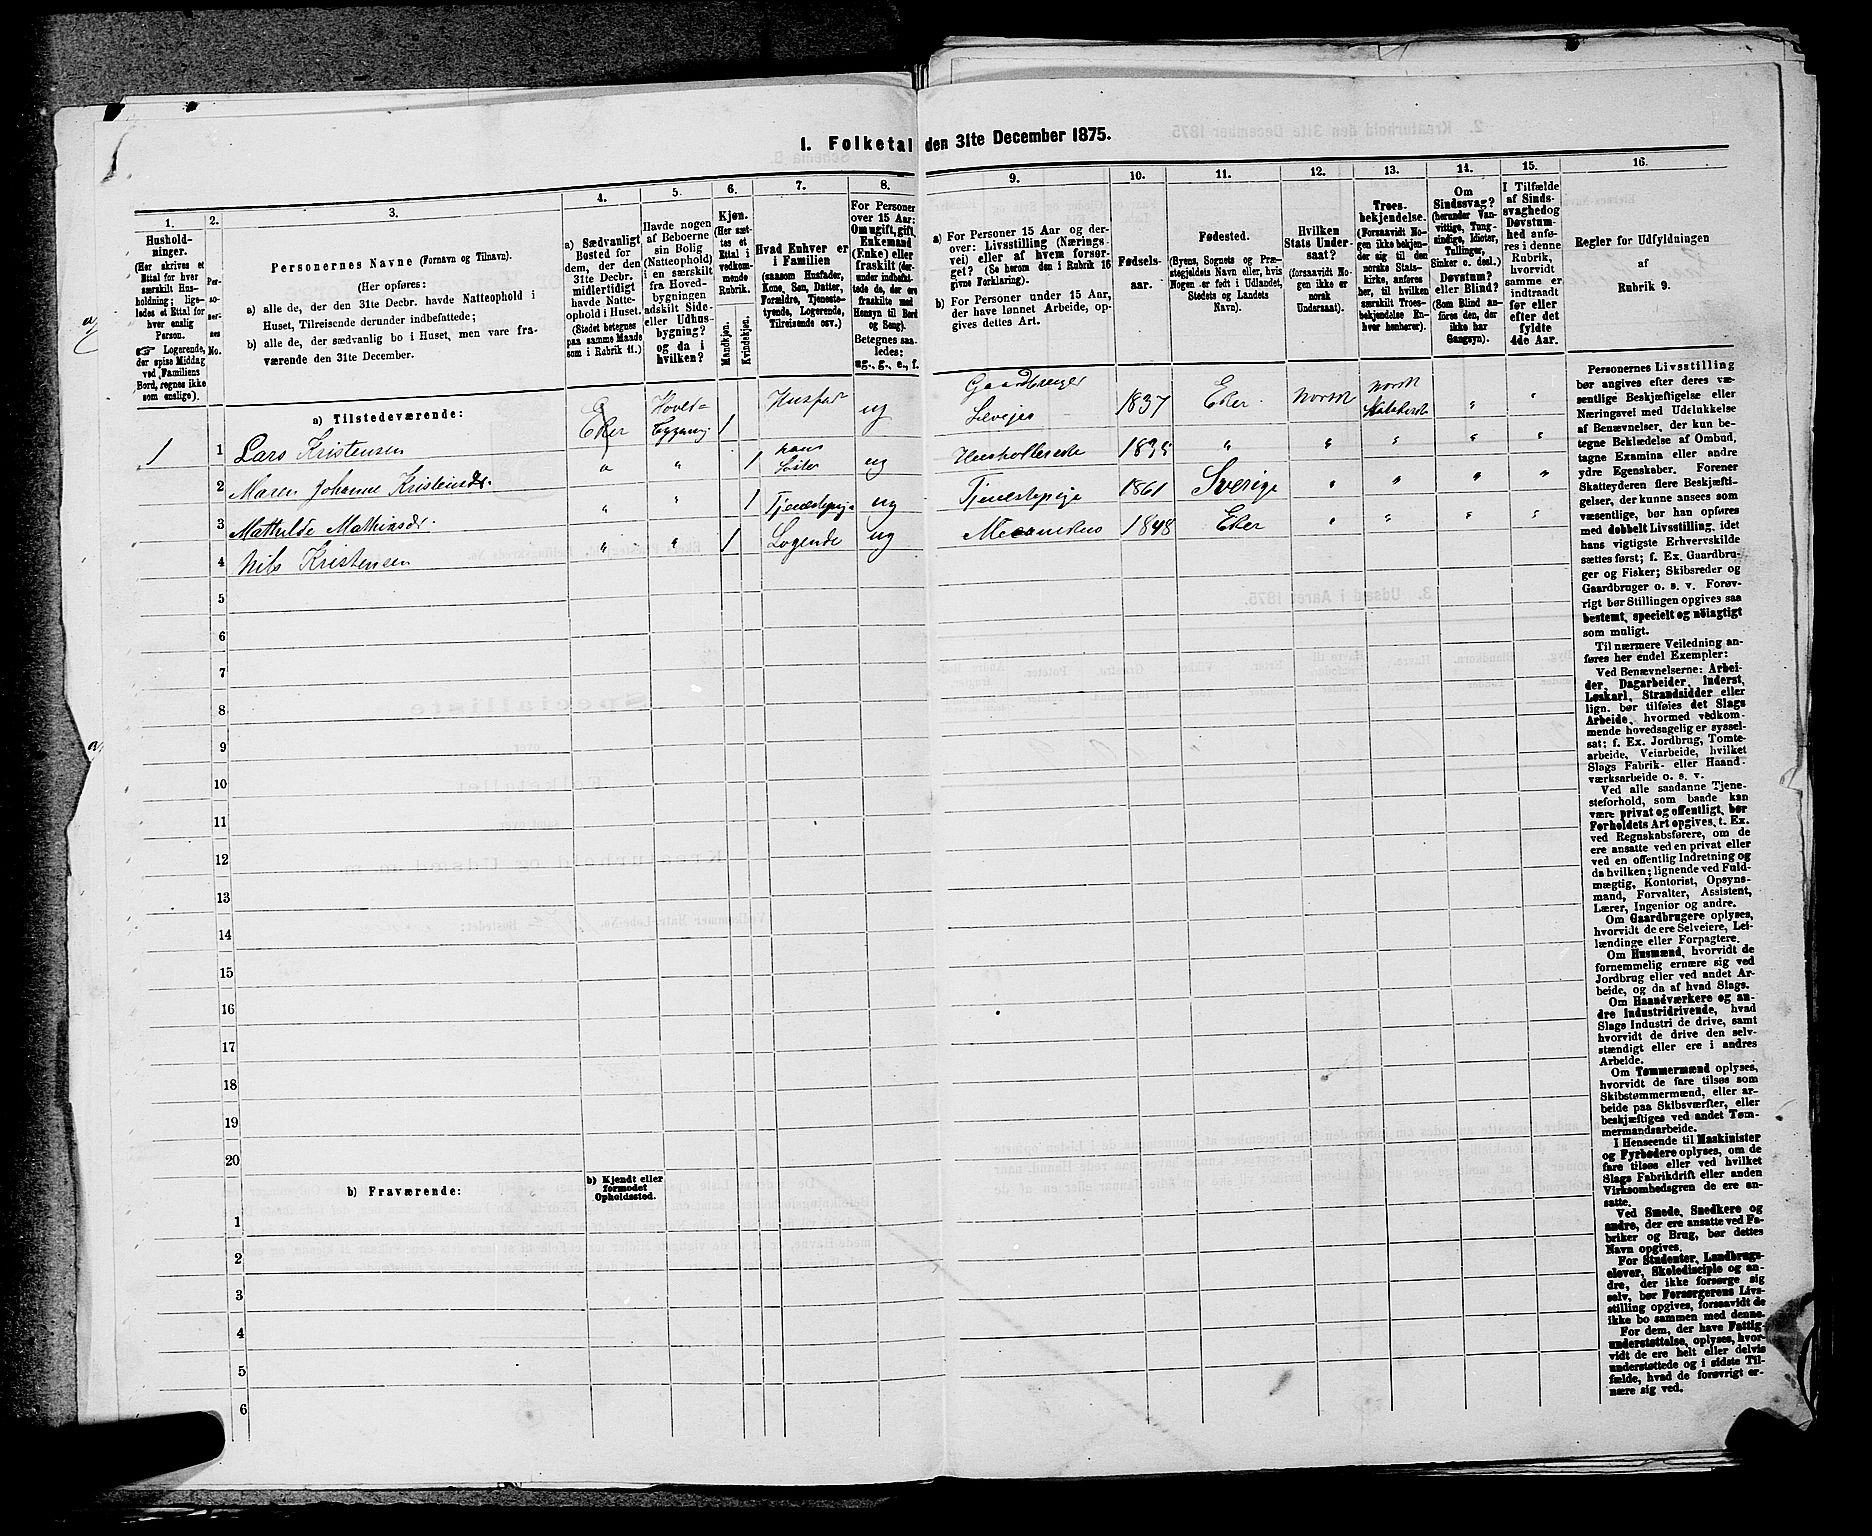 1. Folketal den 31te December 1875.
1.
2.
3.
4.
5.
6.
7.
8.
9.
10.
11.
12.
13.
14.
15.
16.
Hushold-
ninger.
(Her skrives et
Ettal for hver
særskilt Hus-
holdning; lige-
ledes et Ettal for
hver enslig
Person.
☞ Logerende,
der spise Middag
ved Familiens
Bord, regnes ikke
som enslige).
Per-
so-
ner-
nes
No.
Personernes Navne (Fornavn og Tilnavn).
(Her opføres:
a) alle de, der den 31te Decbr. havde Natteophold i
Huset, Tilreisende derunder indbefattede;
b) alle de, der sædvanlig bo i Huset, men vare fra-
værende den 31te December.
a) Sædvanligt
Bosted for
dem, der den
31te Decbr.
midlertidigt
havde Natte-
ophold i Huset.
(Stedet betegnes
paa samme Maade
som i Rubrik 11.)
Havde nogen
af Beboerne
sin Bolig
(Natteophold)
i en særskilt
fra Hoved-
bygningen
adskilt Side-
eller Udhus-
bygning? og da i
hvilken?
Kjøn.
(Her sæt-
tes et
Ettal i
vedkom-
mende
Rubrik.
Mandkjøn.
Kvindekjøn.
Hvad Enhver er
i Familien
(saasom Husfader,
Kone, Søn, Datter,
Forældre, Tjeneste-
tyende, Logerende,
Tilreisende osv.)
For Personer
over 15 Aar:
Om ugift, gift,
Enkemand
(Enke) eller
fraskilt (der-
under indbefat-
tede de, der ere
fraskilte med
Hensyn til Bord
og Seng).
Betegnes saa-
ledes:
ug., g., e., f.
a) For Personer 15 Aar og der-
over: Livsstilling (Nærings-
vei) eller af hvem forsør-
get? (Se herom den i Rubrik 16
givne Forklaring).
b) For Personer under 15 Aar,
der have lønnet Arbeide, op-
gives dettes Art.
Fødsels-
aar.
Fødested.
(Byens, Sognets og Præ-
stegjeldets Navn eller, hvis
Nogen er født i Udlandet,
Stedets og Landets
Navn).
Hvilken
Stats Under-
saat?
(forsaavidt No-
gen ikke er
norsk
Undersaat).
Troes-
bekjendelse.
(Forsaavidt No-
gen ikke bekjen-
der sig til den
norske Stats-
kirke, anføres
her, til hvilken
særskilt Troes-
bekjendelse En-
hver henhører).
Om
Sindssvag?
(herunder Van-
vittige, Tung-
sindige, Idioter,
Tullinger,
Sinker o. desl.)
Døvstum?
eller Blind?
(Som Blind an-
føres den, der
ikke har
Gangsyn).
I Tilfælde
af Sinds-
svaghed og
Døvstum-
hed anfø-
res i denne
Rubrik,
hvorvidt
samme er
indtraadt
før eller
efter det
fyldte
4de Aar.
Regler for Udfyldningen
af
Rubrik 9.
a) Tilstedeværende:
1 1 Lars Kristensen Eker Hoved=bygning 1 Husfad ug Gaardbruger Selvejer 1837 Eker Norsk norsk Statskirke " "
2 Maren Johanne Kristensdr. " " 1 hans Søster ug Husholderske 1835 " " " " "
3 Mathilde Mathisdr. " " 1 Tjenestepige ug Tjenestepige 1861 Sverige " " " "
4 Nils Kristensen " " 1 Logende ug 1848 Eker " " " "
5
6
7
8
9
10
11
12
13
14
15
16
17
18
19
20
b) Fraværende:
b) Kjendt eller
formodet
Opholdssted.
1
2
3
4
5
6
Personernes Livsstilling
bør angives efter deres væ-
sentlige Beskjæftigelse eller
Næringsvei med Udelukkelse
af Benævnelser, der kun be-
tegne Beklædelse af Ombud,
tagne Examina eller andre
ydre Egenskaber. Forener
Skatteyderen flere Beskjæfti-
gelser, der kunne ansees som
væsentlige, bør han opføres
med dobbelt Livsstilling, idet
hans vigtigste Erhvervskilde
sættes først; f. Ex. Gaardbru-
ger og Fisker; Skibsreder og
Gaardbruger o. s. v. Forøv-
rigt bør Stillingen opgives saa
bestemt, specielt og nöiagtigt
som muligt.
Til nærmere Veiledning an-
føres her endel Exempler:
Ved Benævnelserne: Arbei-
der, Dagarbeider, Inderst,
Løskarl, Strandsidder eller
lign. bør tilføies det Slags
Arbeide, hvormed vedkom-
mende hovedsagelig er syssel-
sat; f. Ex. Jordbrug, Tomte-
arbeide, Veiarbeide, hvilket
Slags Fabrik- eller Haand-
værksarbeide o. s. v.
Ved alle saadanne Tjene-
steforhold, som baade kan
være privat og offentligt, bør
Forholdets Art opgives, t. Ex.
ved Regnskabsførere, om de
ere ansatte ved en privat eller
ved en offentlig Indretning og
da hvilken; lignende ved Fuld-
mægtig, Kontorist, Opsyns-
mand, Forvalter, Assistent,
Lærer, Ingeniør og andre.
Om Gaardbrugere oplyses,
hvorvidt de ere Selveiere, Lei-
lændinge eller Forpagtere.
Om Husmænd, hvorvidt de
fornemmelig ernære sig ved
Jordbrug eller ved andet Ar-
beide, og da af hvad Slags.
Om Haandværkere og an-
dre Industridrivende, hvad
Slags Industri de drive, samt
hvorvidt de drive den selv-
stændigt eller ere i andres
Arbeide.
Om Tømmermænd oplyses,
hvorvidt de fare tilsøs som
Skibstømmermænd, eller ar-
beide paa Skibsværfter, eller
beskjæftiges ved andet Tøm-
mermandsarbeide.
I Henseende til Maskinister
og Fyrbødere oplyses, om de
fare tilsøs eller ved hvilket
Slags Fabrikdrift eller anden
Virksomhedsgren de ere an-
satte.
Ved Smede, Snedkere og
andre, der ere ansatte ved Fa-
briker og Brug, bør dettes
Navn opgives.
For Studenter, Landbrugs-
elever, Skoledisciple og an-
dre, der ikke forsørge sig
selv, bør Forsørgerens Livs-
stilling opgives, forsaavidt de
ikke bo sammen med denne.
For dem, der have Fattig-
understøttelse, oplyses, hvor-
vidt de ere helt eller delvis
understøttede og i sidste Til-
fælde, hvad de forøvrigt er-
nære sig ved.